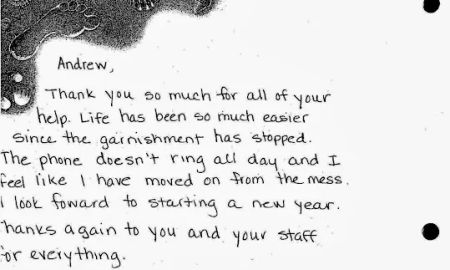 Andrew,
Thank you so much for all of your
help. Life has been so much easier
since the garnishment has stopped.
The phone doesn't ring all day and I
feel like I have moved on from the mess.
I look foward to starting a new year.
hanks again to you and your staff
or everything.